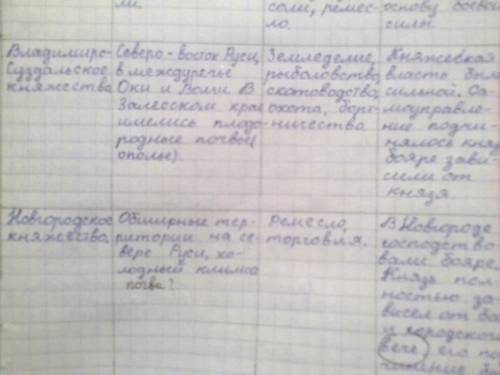 ли.
соли, ремес-
ло.
основу боево
силы.
Владимиро-
Суздальское
княжество
Северо-восток Руси,
в междуречье
Оки и Волги. В
Залесском крае
имелись плодо-
родные почвы(
ополье).
Земледелие,
рыболовство,
скотоводство,
охота, борт-
ничество
Княжеская
власть был
сильной. Са-
моуправле-
ние подчи-
нялось княз
бояре зави
сили от
князя.
Новгородское
княжество
Обширные тер-
ритории на се-
вере Руси, хо-
лодный климат
почва?
Ремесло,
торговля.
В Новгороде
господство
вали бояре.
Князь пол
ностью за
висел от бо
и городского
вече, его по
чинание бо